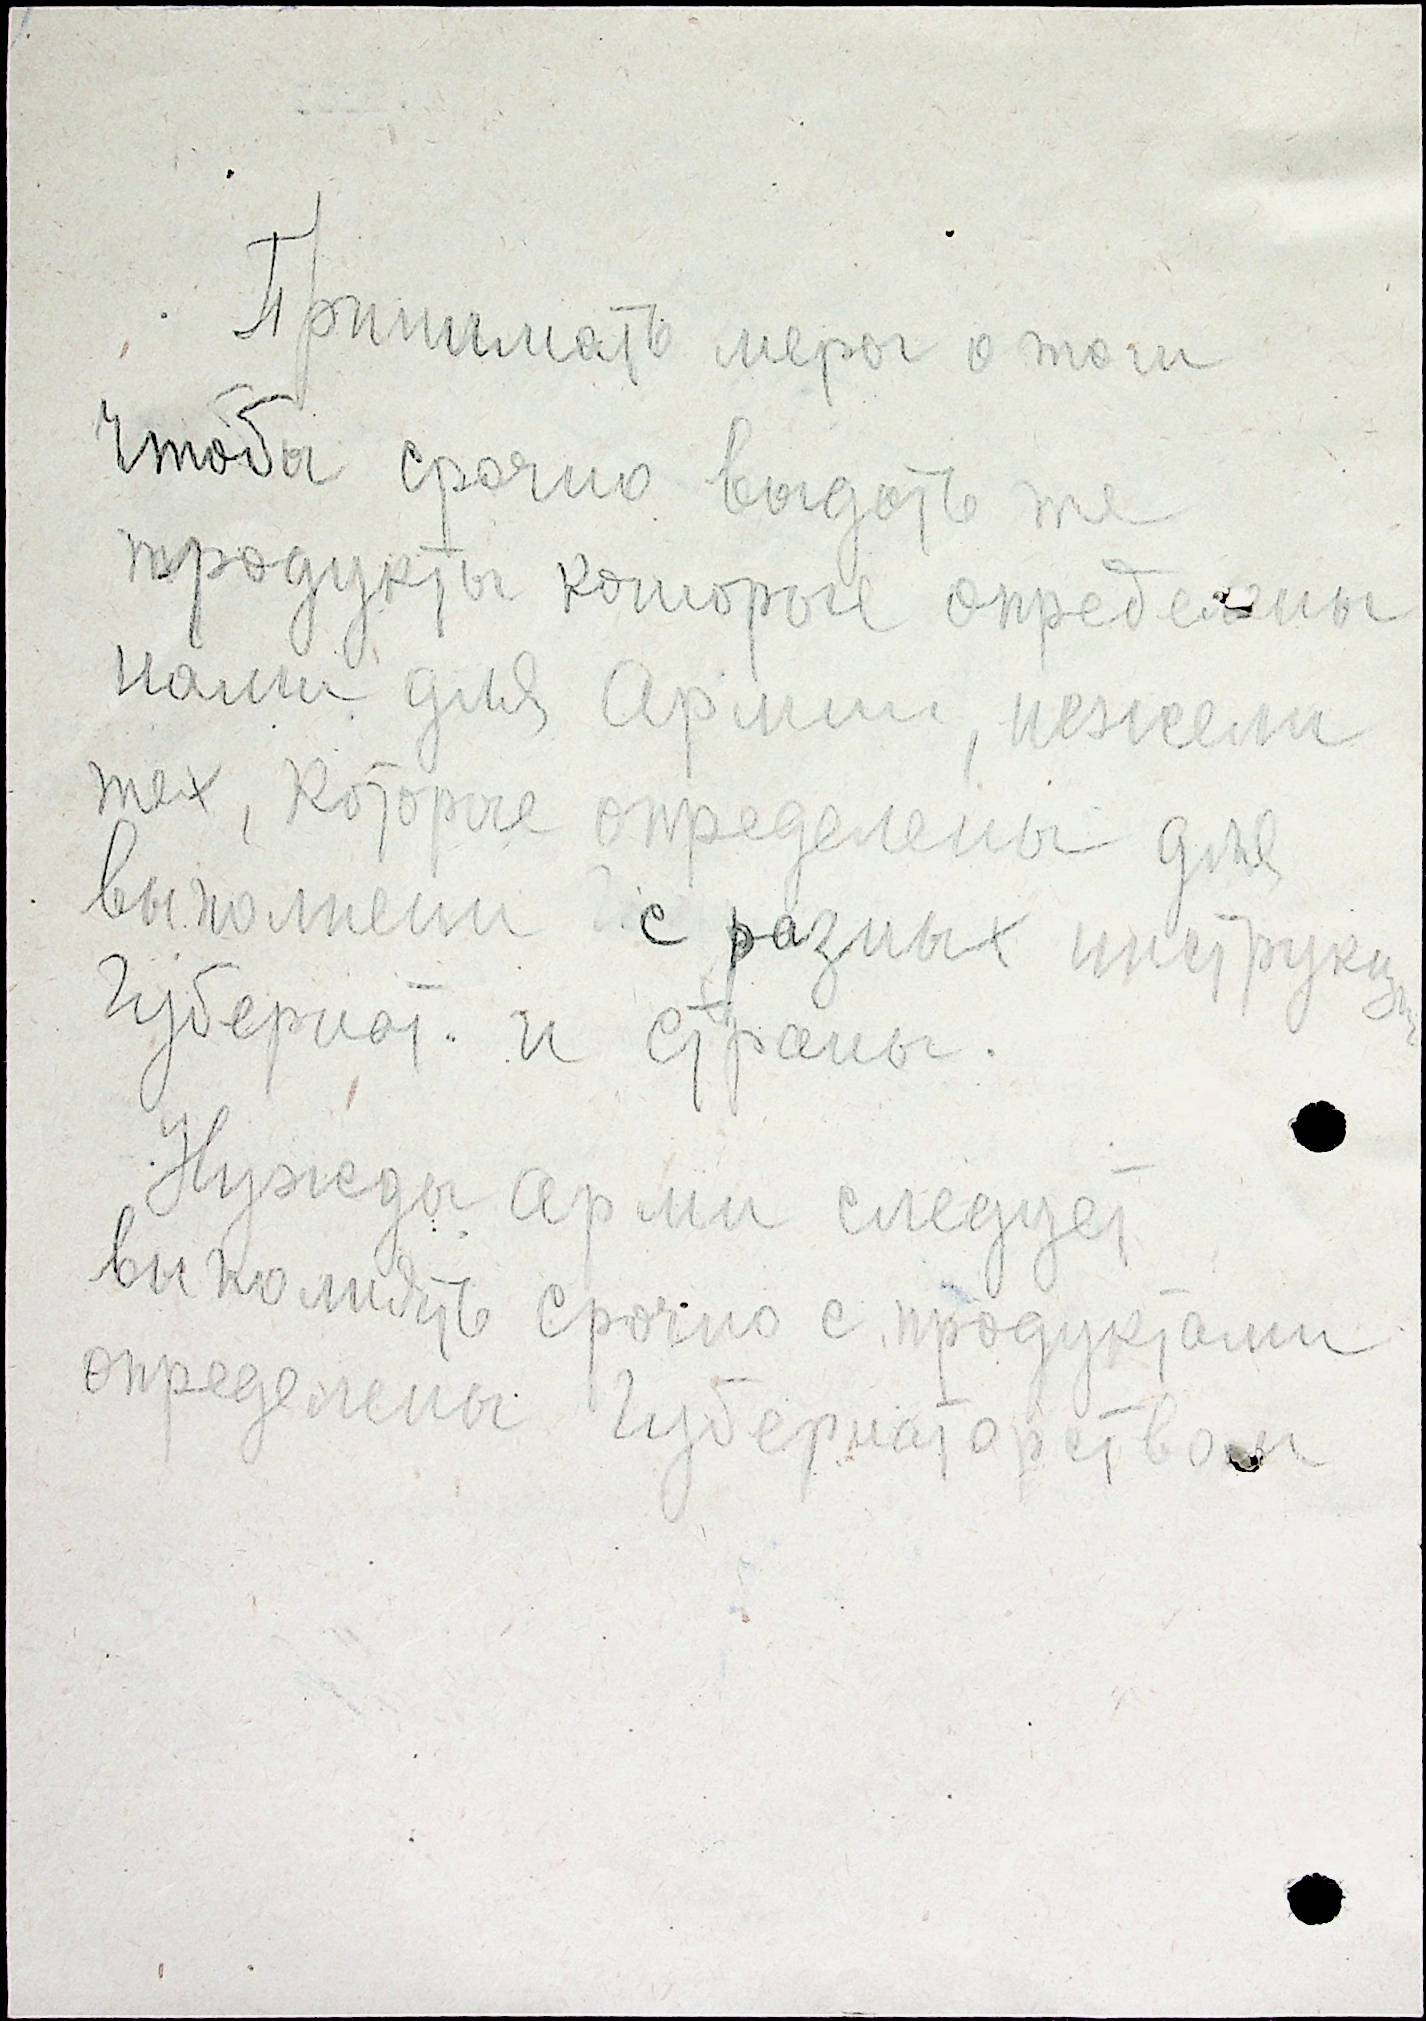 Принимать меры о том
чтобы срочно выдать те
продукты которые определены
нами для Армии, нежели
тех, которые определены для
выполнени с разных инструкций
Губернат. и страны.
Нужды Арми следует
выполнять срочно с продуктами
определены Губернаторством